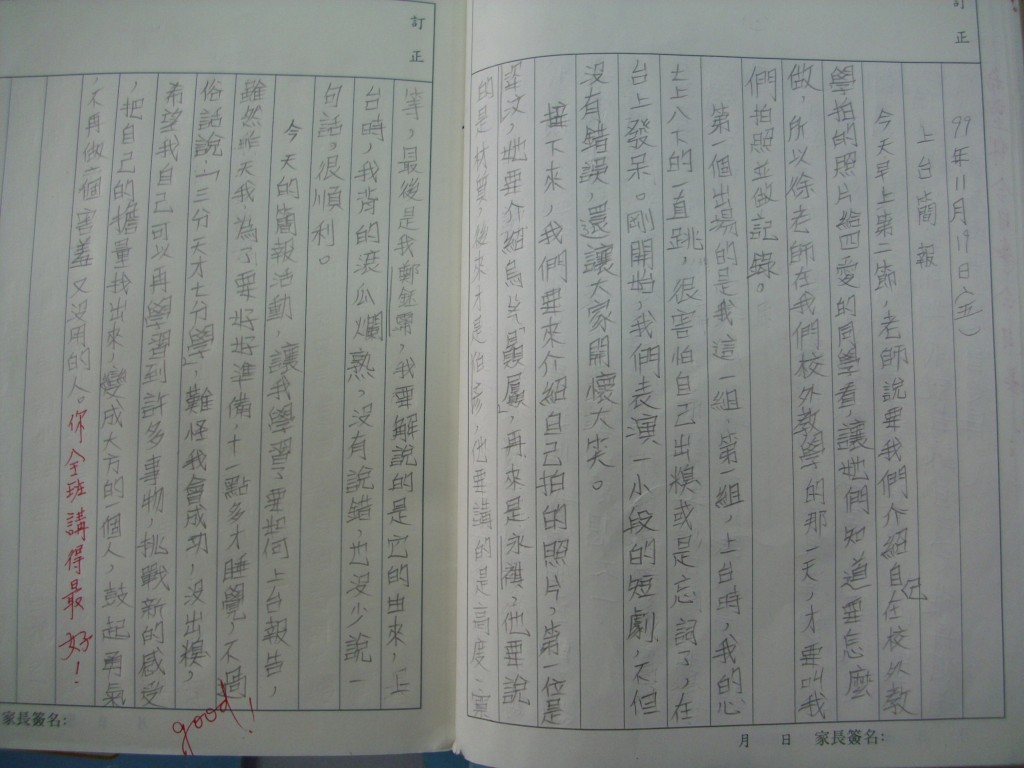 訂正
99年11月19日(五)
上台簡報
今天早上第二節，老師說要我們介紹自己在校外教
學拍的照片給四愛的同學看，讓他們知道要怎麼
做，所以徐老師在我們校外教學的那一天，才要叫我
們拍照並做記錄。
第一個出場的是我這一組，第一組，上台時，我的心
七上八下的一直跳，很害怕自己出糗或是忘詞了，在
台上發呆。剛開始，我們表演一小段的短劇，不但
沒有錯誤，還讓大家開懷大笑。
接下來，我們要來介紹自己拍的照片，第一位是
，她要介紹鳥片，再來是永祺，他要說
的是材質，後來才是伯彥，他要講的是高度、寬
月 日 家長簽名:
訂正
等，最後是我鄭，我要解說的是它的由來，上
台時，我背的滾瓜爛熟，沒有說錯，也沒少說一
句話，很順利。
今天的簡報活動，讓我學習了要如何上台報告，
雖然昨天我為了要好好準備，十一點多才睡覺，不過
俗話說：「三分天才七分學」，難怪我會成功，沒出糗，
希望我自己可以再學習到許多事物，挑戰新的感受
，把自己的擔量找出來，變成大方的一個人，鼓起勇氣
，不再做一個害羞又沒用的人。你全班講得最好！
good!
家長簽名: